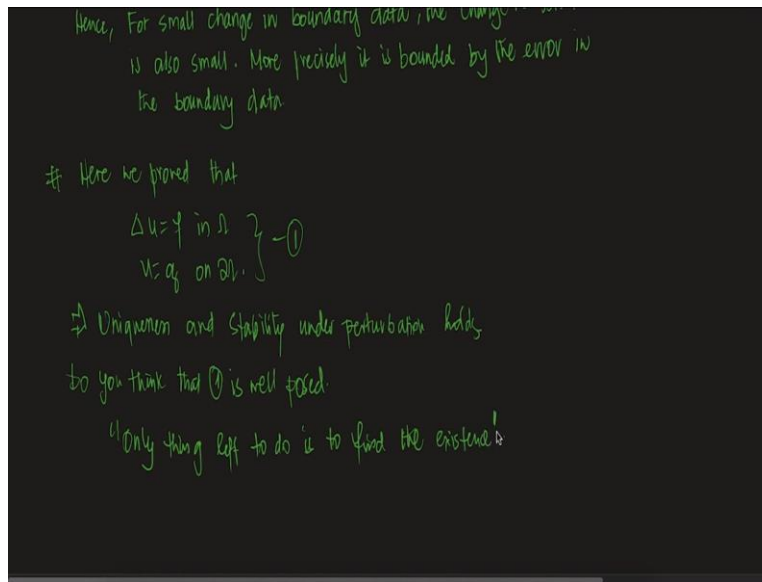 Hence, For small change in boundary data, the change
is also small. More precisely it is bounded by the error in
the boundary data
# Here we proved that
Δu = f in Ω
u = g on ∂Ω. } - ①
⇒ Uniqueness and Stability under perturbation holds
Do you think that ① is well posed.
"Only thing left to do is to find the existence"